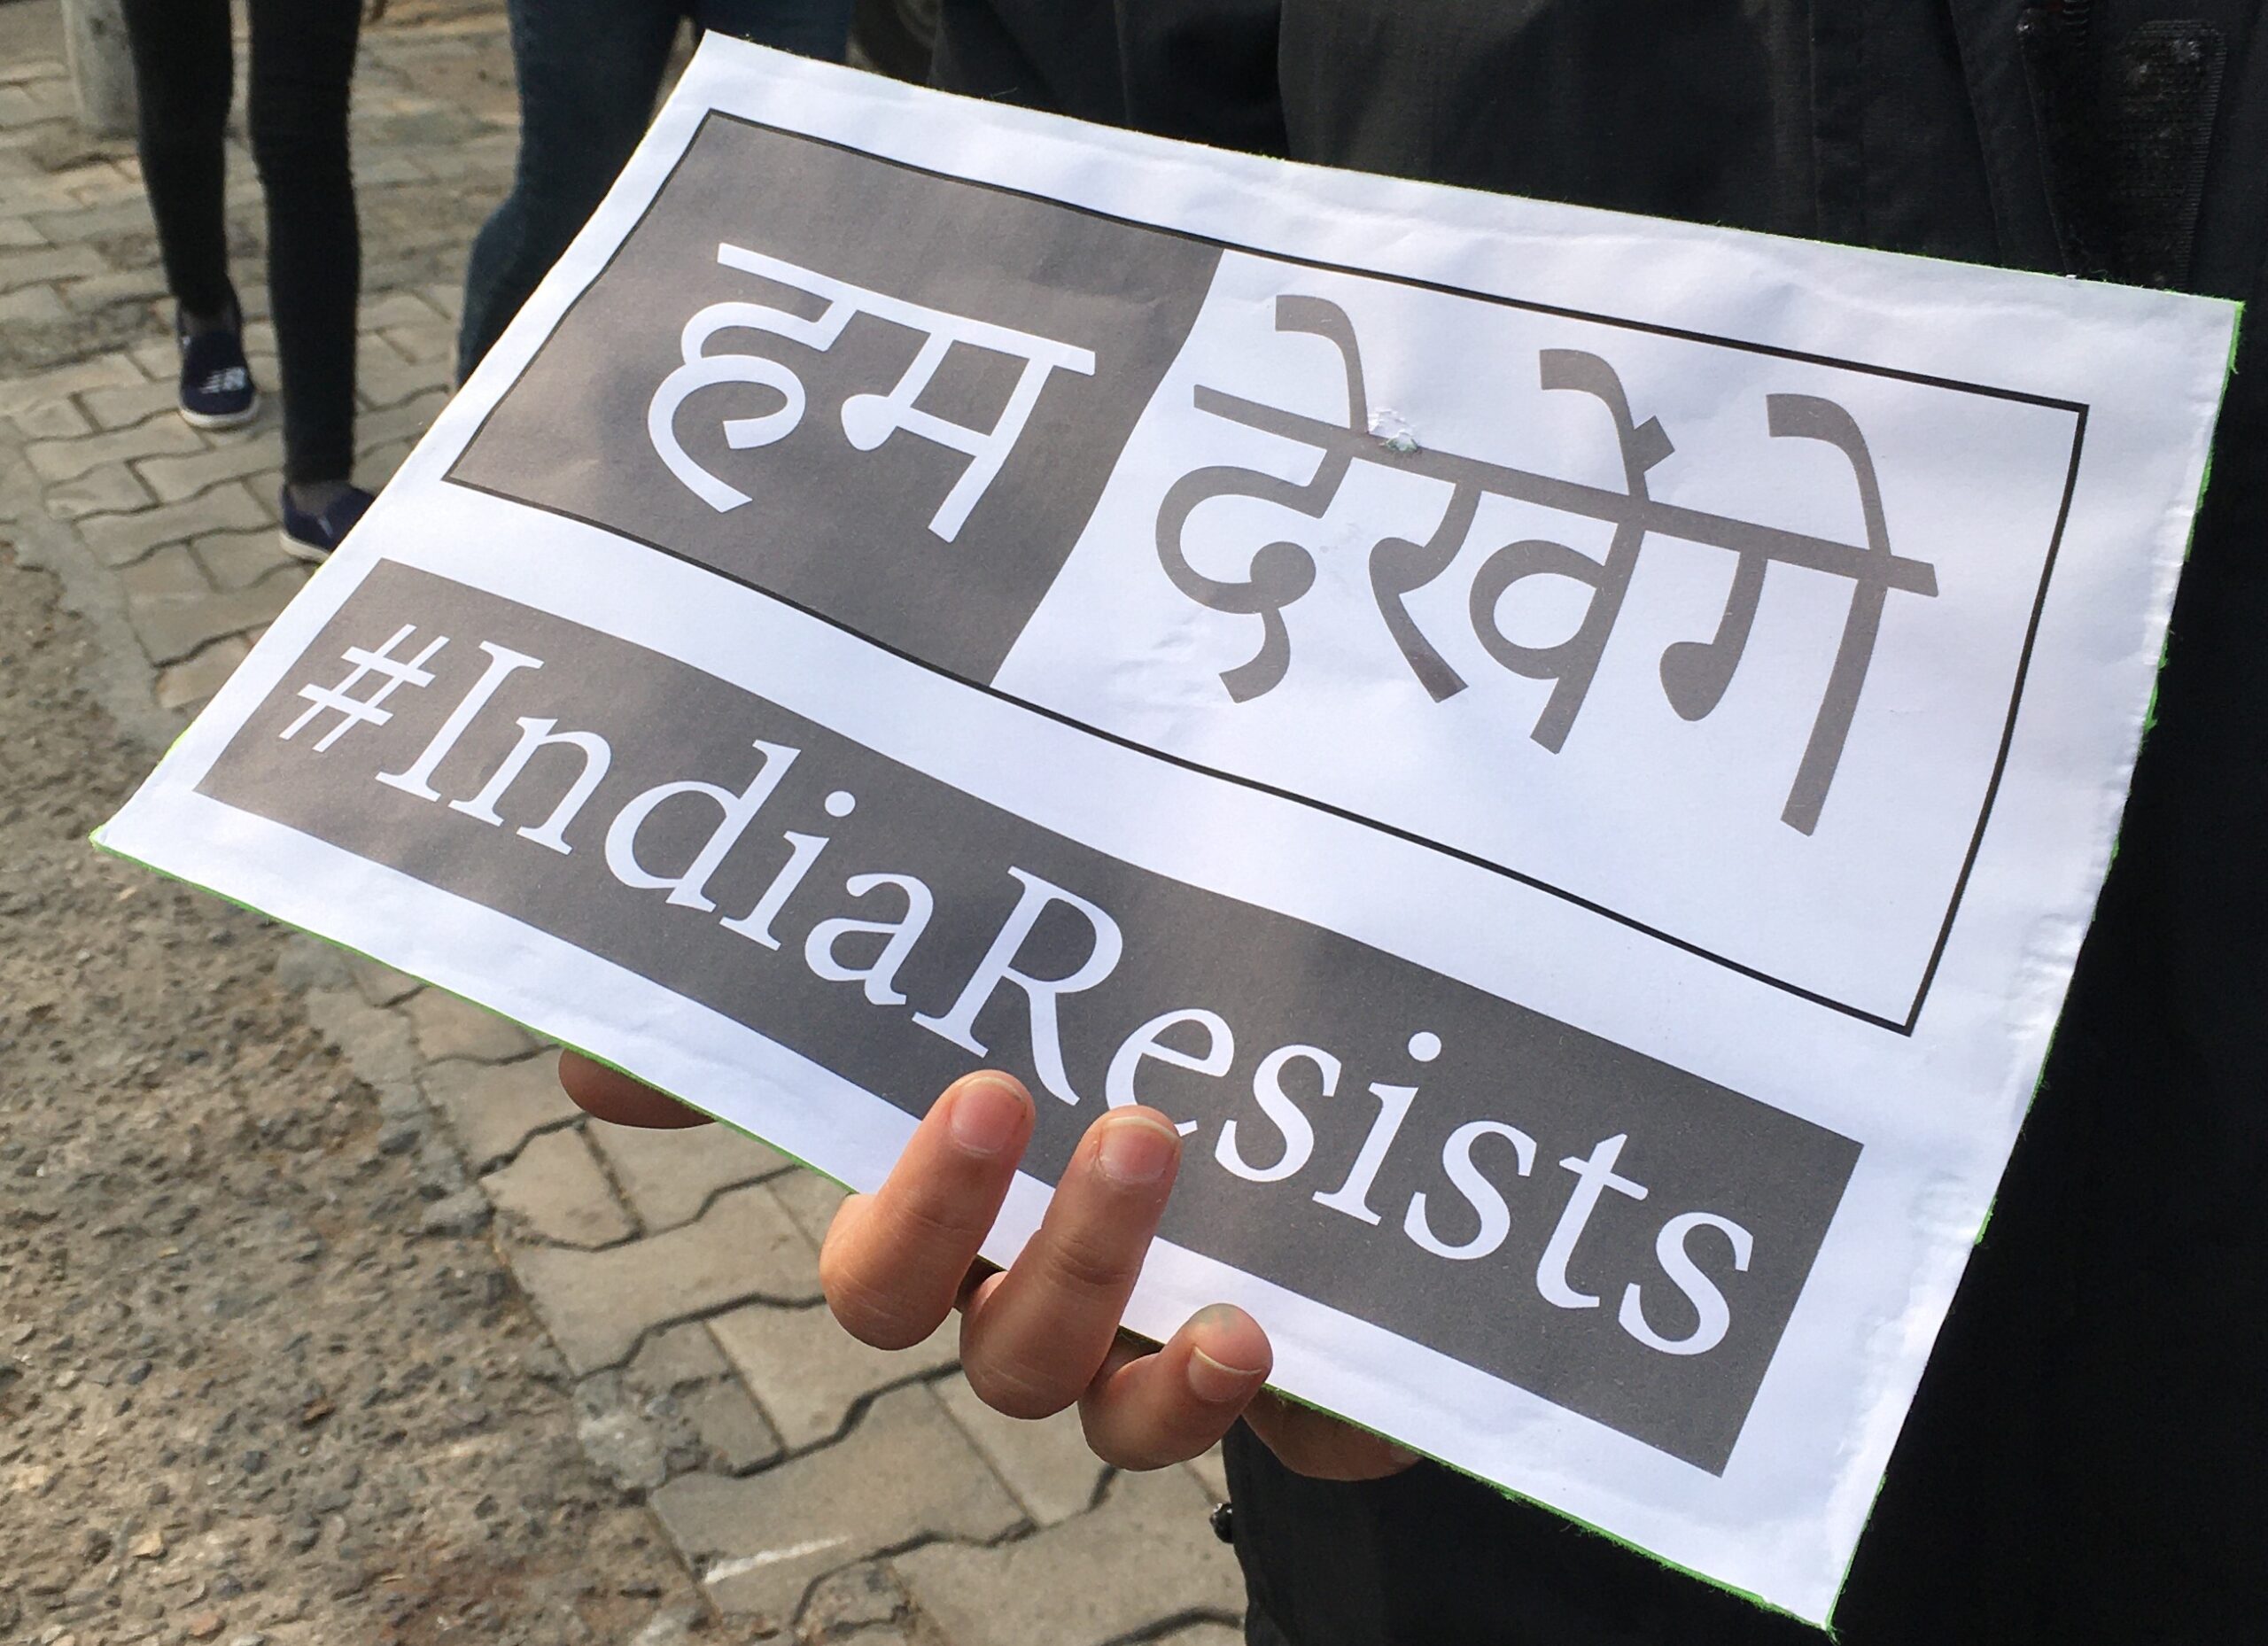 हम देखेंगे
#IndiaResists